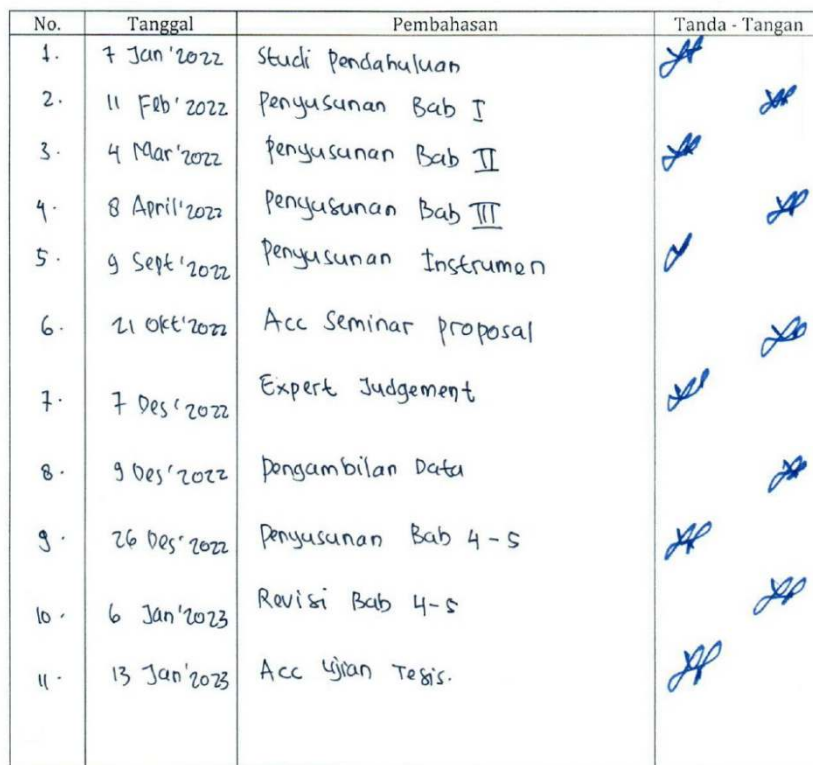 No. Tanggal Pembahasan Tanda - Tangan
1. 7 Jan'2022 Studi Pendahuluan
2. 11 Feb'2022 Penyusunan Bab I
3. 4 Mar'2022 Penyusunan Bab II
4. 8 April'2022 Penyusunan Bab III
5. 9 Sept'2022 Penyusunan Instrumen
6. 21 Okt'2022 Acc Seminar proposal
7. 7 Des'2022 Expert Judgement
8. 9 Des'2022 Pengambilan Data
9. 26 Des'2022 Penyusunan Bab 4-5
10. 6 Jan'2023 Revisi Bab 4-5
11. 13 Jan'2023 Acc Ujian Tesis.